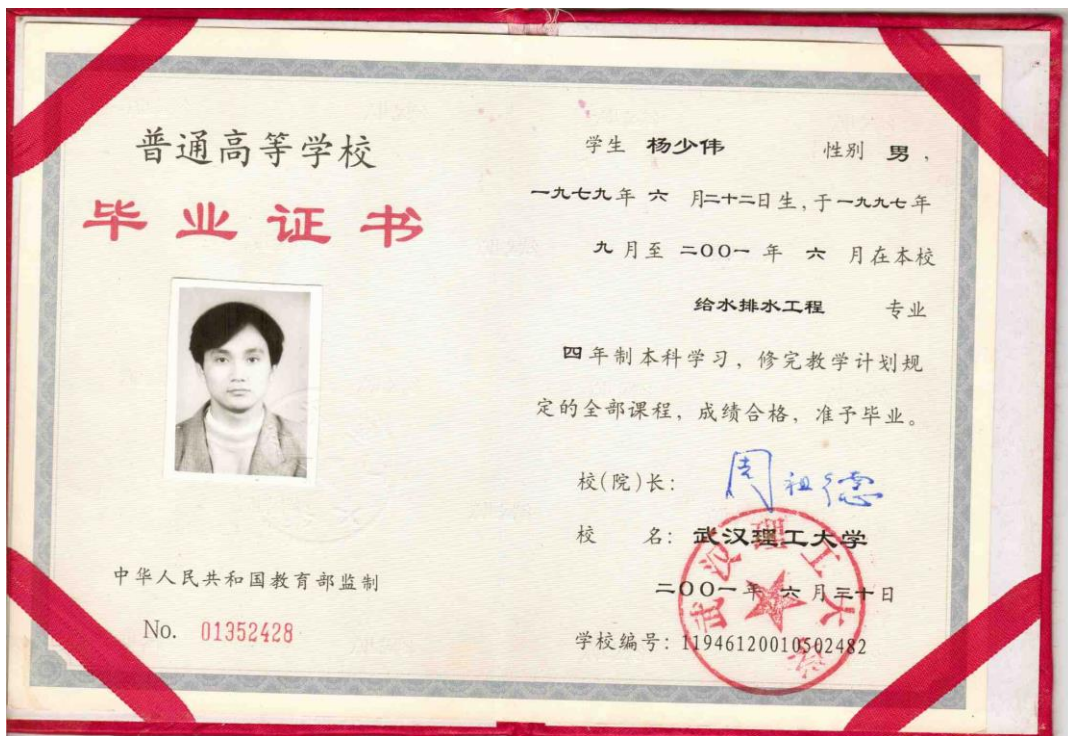 普通高等学校
毕业证书
中华人民共和国教育部监制
No. 01352428
学生 杨少伟 性别 男,
一九七九年 六 月二十二日生,于一九九七年
九 月至 二〇〇一 年 六 月在本校
给水排水工程 专业
四年制本科学习,修完教学计划规
定的全部课程,成绩合格,准予毕业。
校(院)长: 周祖德
校 名: 武汉理工大学
二〇〇一年 六 月三十日
学校编号: 11946120010502482
武汉理工大学